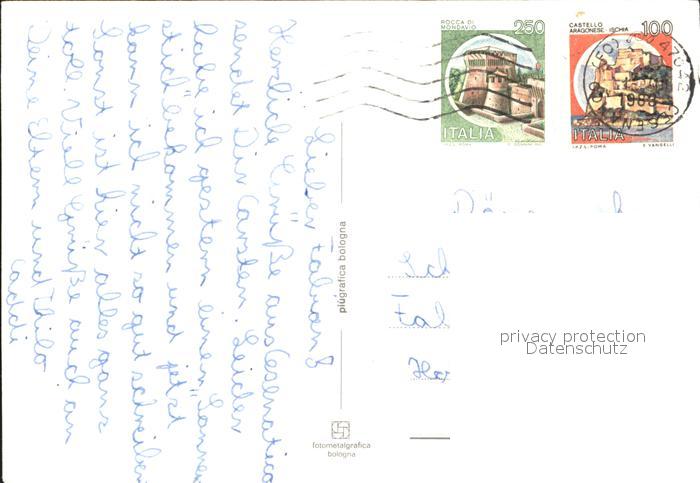 ROCCA DI
MONDAVIO
250
ITALIA
I.P.Z.S. ROMA
CASTELLO
ARAGONESE · ISCHIA
100
ITALIA
I.P.Z.S. ROMA
E. VANGELLI
47042
1989
Lieber Fabian!
Herzliche Grüße aus Cesenatico
sendet Dir Carsten. Leider
habe ich gestern einen Sonnen
stich bekommen und jetzt
kann ich nicht so gut schreiben
sonst ist hier alles ganz
toll. Viele Grüße auch an
Deine Eltern und Thilo
Caddi
piùgrafica bologna
fotometalgráfica
bologna
privacy protection
Datenschutz